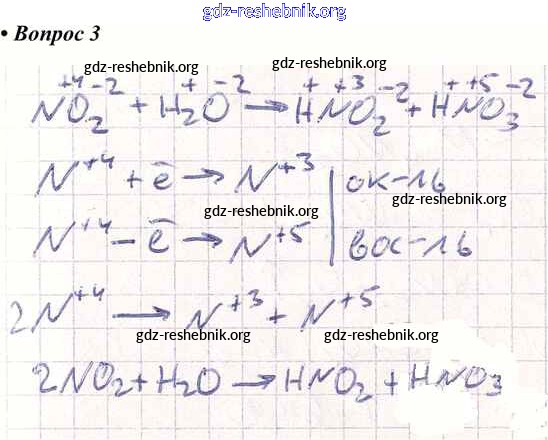 gdz-reshebnik.org
• Вопрос 3
gdz-reshebnik.org
gdz-reshebnik.org
+4 -2 + -2 + +3 -2 + +5 -2
NO₂ + H₂O → HNO₂ + HNO₃
N⁺⁴ + ē → N⁺³ | ок-ль
gdz-reshebnik.org
gdz-reshebnik.org
N⁺⁴ − ē → N⁺⁵ | вос-ль
2N⁺⁴ → N⁺³ + N⁺⁵
gdz-reshebnik.org
gdz-reshebnik.org
2NO₂ + H₂O → HNO₂ + HNO₃